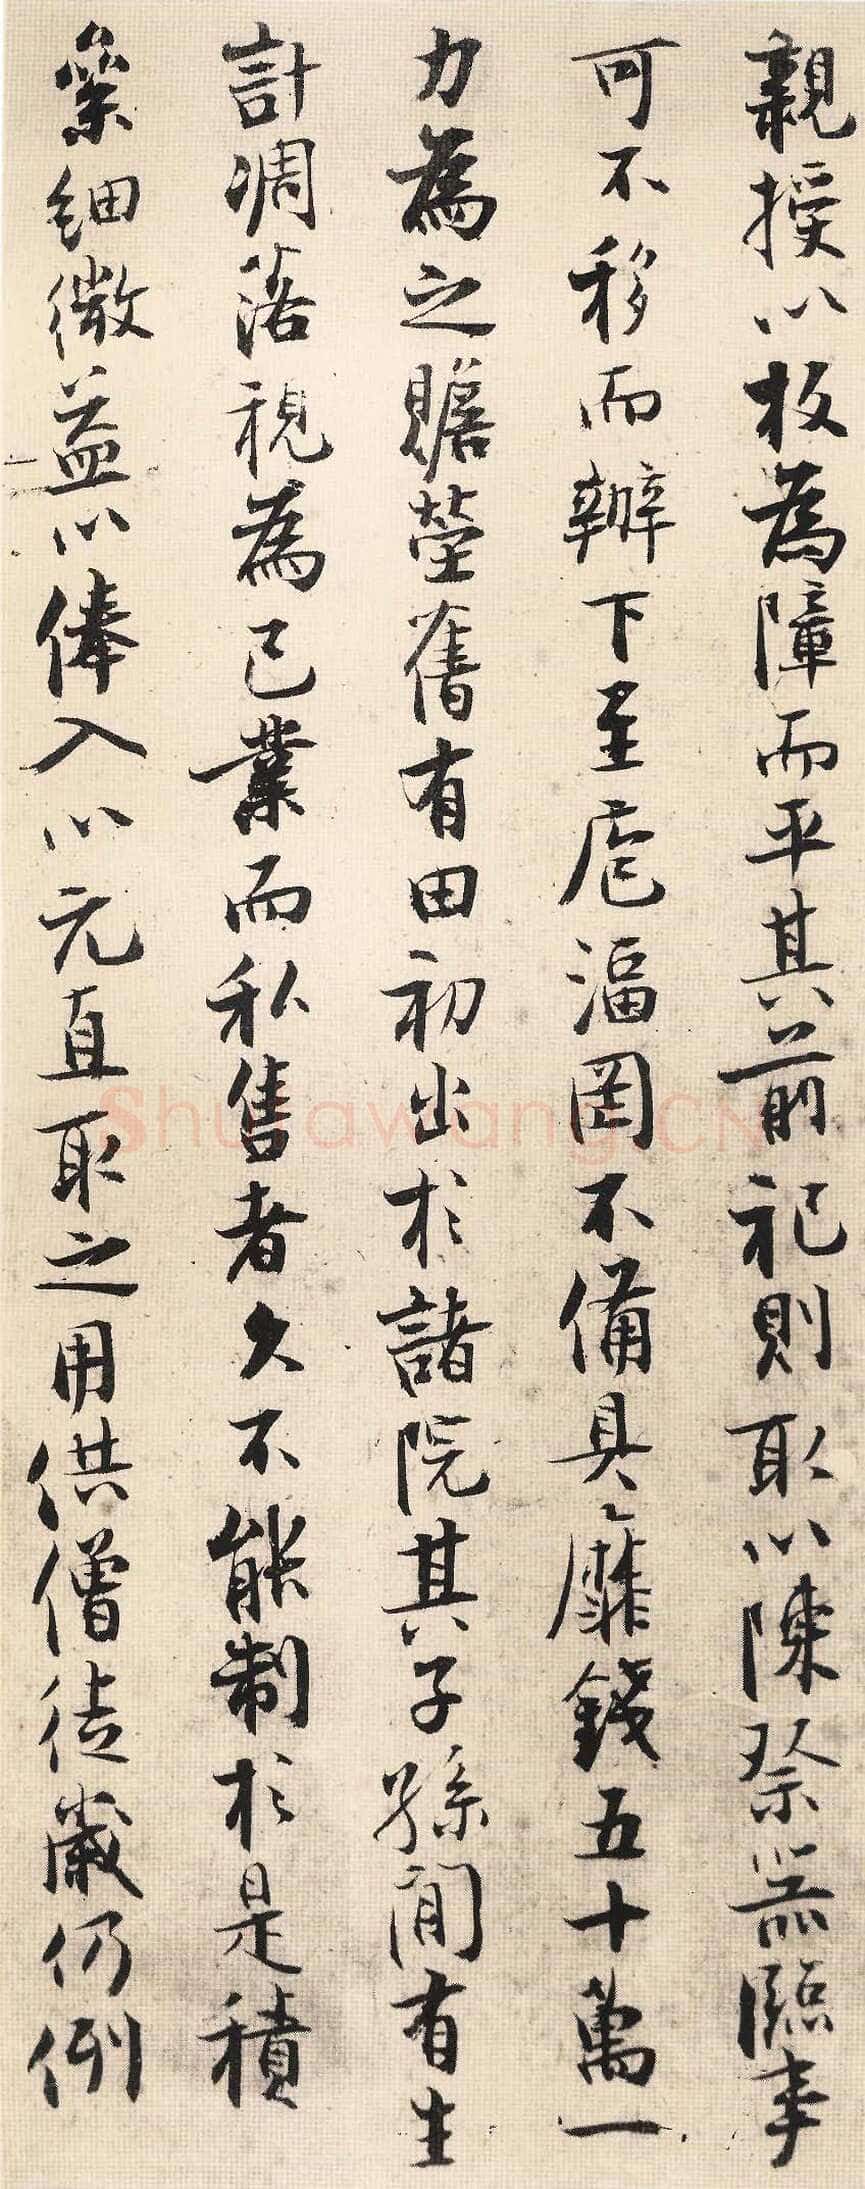 親授以板為障而平其前祀則取以陳祭器臨事
可不移而辦下至庖湢罔不備具靡錢五十萬一
力為之贍塋舊有田初出於諸院其子孫間有生
計凋落視為己業而私售者久不能制於是積
絫細微益以俸入以元直取之用供僧徒歲仍例
Shufawang.CN